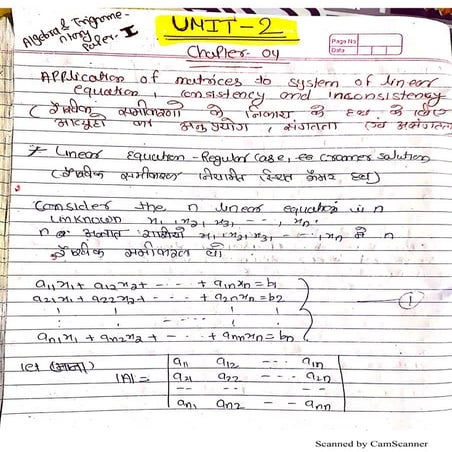 Algebra & Trigonome-
ntory
Paper-I
UNIT-2
Page No
Date
Chapter-04
Application of matrices to system of linear
equation, consistency and inconsistency
(रैखिक समीकरणों के निकाय के हल के लिए
आव्यूहों का अनुप्रयोग, संगतता एवं असंगतता
* Linear Equation-Regular case, cramer solution
(रैखिक समीकरण नियमित स्थित क्रैमर हल)
Consider the n linear equation is n
unknown x₁, x₂, x₃, ---, xₙ.
n अज्ञात राशियों x₁, x₂, x₃, ---, xₙ में n
रैखिक समीकरण
a₁₁x₁ + a₁₂x₂ + - - - + a₁ₙxₙ = b₁
a₂₁x₁ + a₂₂x₂ + - - - + a₂ₙxₙ = b₂
①
aₙ₁x₁ + aₙ₂x₂ + - - - + aₙₙxₙ = bₙ
let (माना)
|A| = | a₁₁ a₁₂ - - - a₁ₙ |
| a₂₁ a₂₂ - - - a₂ₙ |
| -- -- - - - -- |
| aₙ₁ aₙ₂ - - - aₙₙ |
Scanned by CamScanner